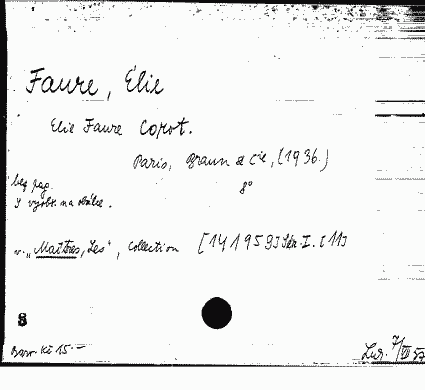 Faure, Elie
Elie Faure Corot.
Paris, Braun & Cie, (1936.)
bez pag. 8°
S vyobr. na obálce.
v. „Maîtres, Les", Collection [141959] Sér. I. [11]
8
Brož. Kč 15.—
7/VII 37